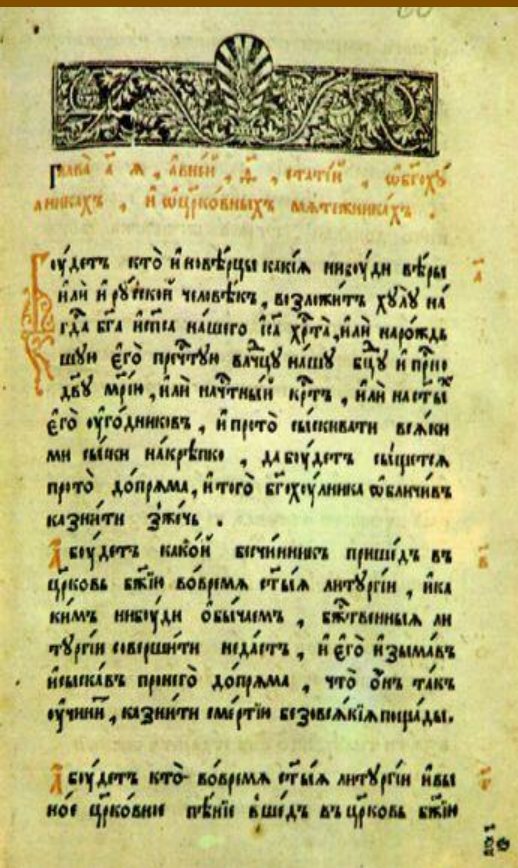 Глава̀ а҃ я , а в не́й , ѳ҃ , статі́й , ѡ бг҃оху́
лникахъ , и҆ ѡ цр҃ковныхъ мѧте́жникахъ .
Боу́детъ кто̀ и҆новѣ́рцы какі́ѧ нибоу́ди вѣ́ры
и҆лѝ и҆ рꙋ́ской человѣ́къ , возложи́тъ хꙋлꙋ̀ на
гдⷭ҇а бг҃а и҆ сп҃са на́шего і҆са хрⷭ҇та̀ , и҆лѝ на рожд
шꙋю є҆го̀ прⷱ҇тꙋю влⷣчцꙋ на́шꙋ бц҃ꙋ и҆ прⷭ҇но
дв҃ꙋ мр҃і́ю , и҆лѝ на чⷭ҇тны́й крⷭ҇тъ , и҆лѝ на ст҃ы́хъ
є҆го̀ оу҆го́дников , и҆ прото̀ сыскивати всѧ́ки
ми сы́ски накрѣ́пко , да боу́детъ сы́щетсѧ
прото̀ до́прѧма , и҆ того̀ бг҃охоу́лника ѡ҆бличи́в
казни́ти зже́чь .
А҆ боу́детъ како́й безчи́нникъ прише́дъ въ
цр҃ковь бж҃ію во́времѧ ст҃ы́ѧ литꙋргі́и , и҆ ка
ки́мъ нибоу́ди о҆бы́чаемъ , бжⷭ҇твенныѧ ли
тꙋргі́и соверши́ти неда́стъ , и҆ є҆го̀ и҆зыма́въ
и҆ сыска́въ пронего̀ до́прѧма , что̀ о҆́нъ та́къ
оу҆чини́т , казни́ти сме́ртію безовсѧ́кіѧ поща́ды .
А҆ боу́детъ кто̀ во́времѧ ст҃ы́ѧ литꙋргі́и и҆ вы
но́е цр҃ко́вное пѣ́ніе вше́дъ въ цр҃ковь бж҃ію
а҃
в҃
г҃